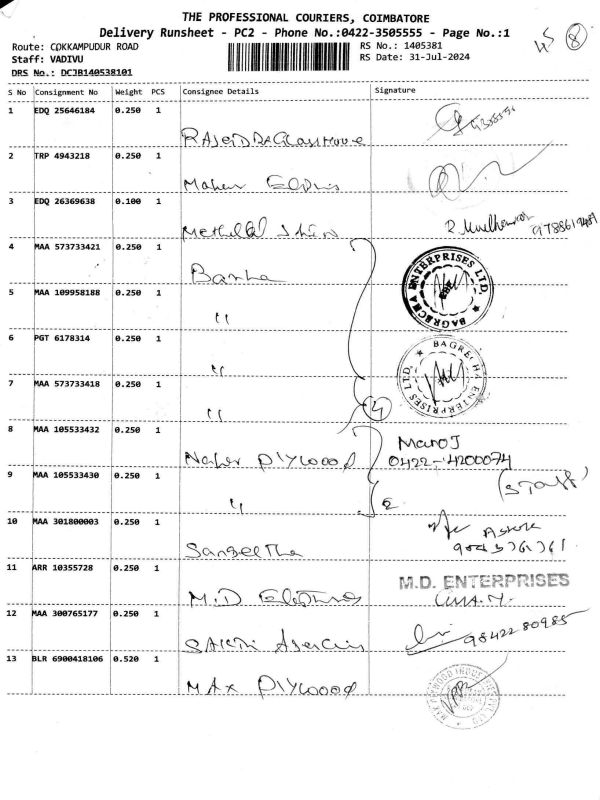 THE PROFESSIONAL COURIERS, COIMBATORE
Delivery Runsheet - PC2 - Phone No.:0422-3505555 - Page No.:1
Route: COKKAMPUDUR ROAD
RS No.: 1405381
8
Staff: VADIVU
RS Date: 31-Jul-2024
DRS No.: DCJB140538101
S No Consignment No Weight PCS Consignee Details Signature
1 EDQ 25646184 0.250 1
2 TRP 4943218 0.250 1
3 EDQ 26369638 0.100 1
4 MAA 573733421 0.250 1
BAGRECHA ENTERPRISES LTD.
5 MAA 109958188 0.250 1 "
6 PGT 6178314 0.250 1 "
BAGRECHA ENTERPRISES LTD.
7 MAA 573733418 0.250 1 "
4
8 MAA 105533432 0.250 1 Plywood ManoJ
0422-4200074
9 MAA 105533430 0.250 1 " 2 (STAFF)
10 MAA 301800003 0.250 1 Sangeetha
11 ARR 10355728 0.250 1 M.D M.D. ENTERPRISES
12 MAA 300765177 0.250 1 SAKTHI 98422 80985
13 BLR 6900418106 0.520 1 MAX Plywood